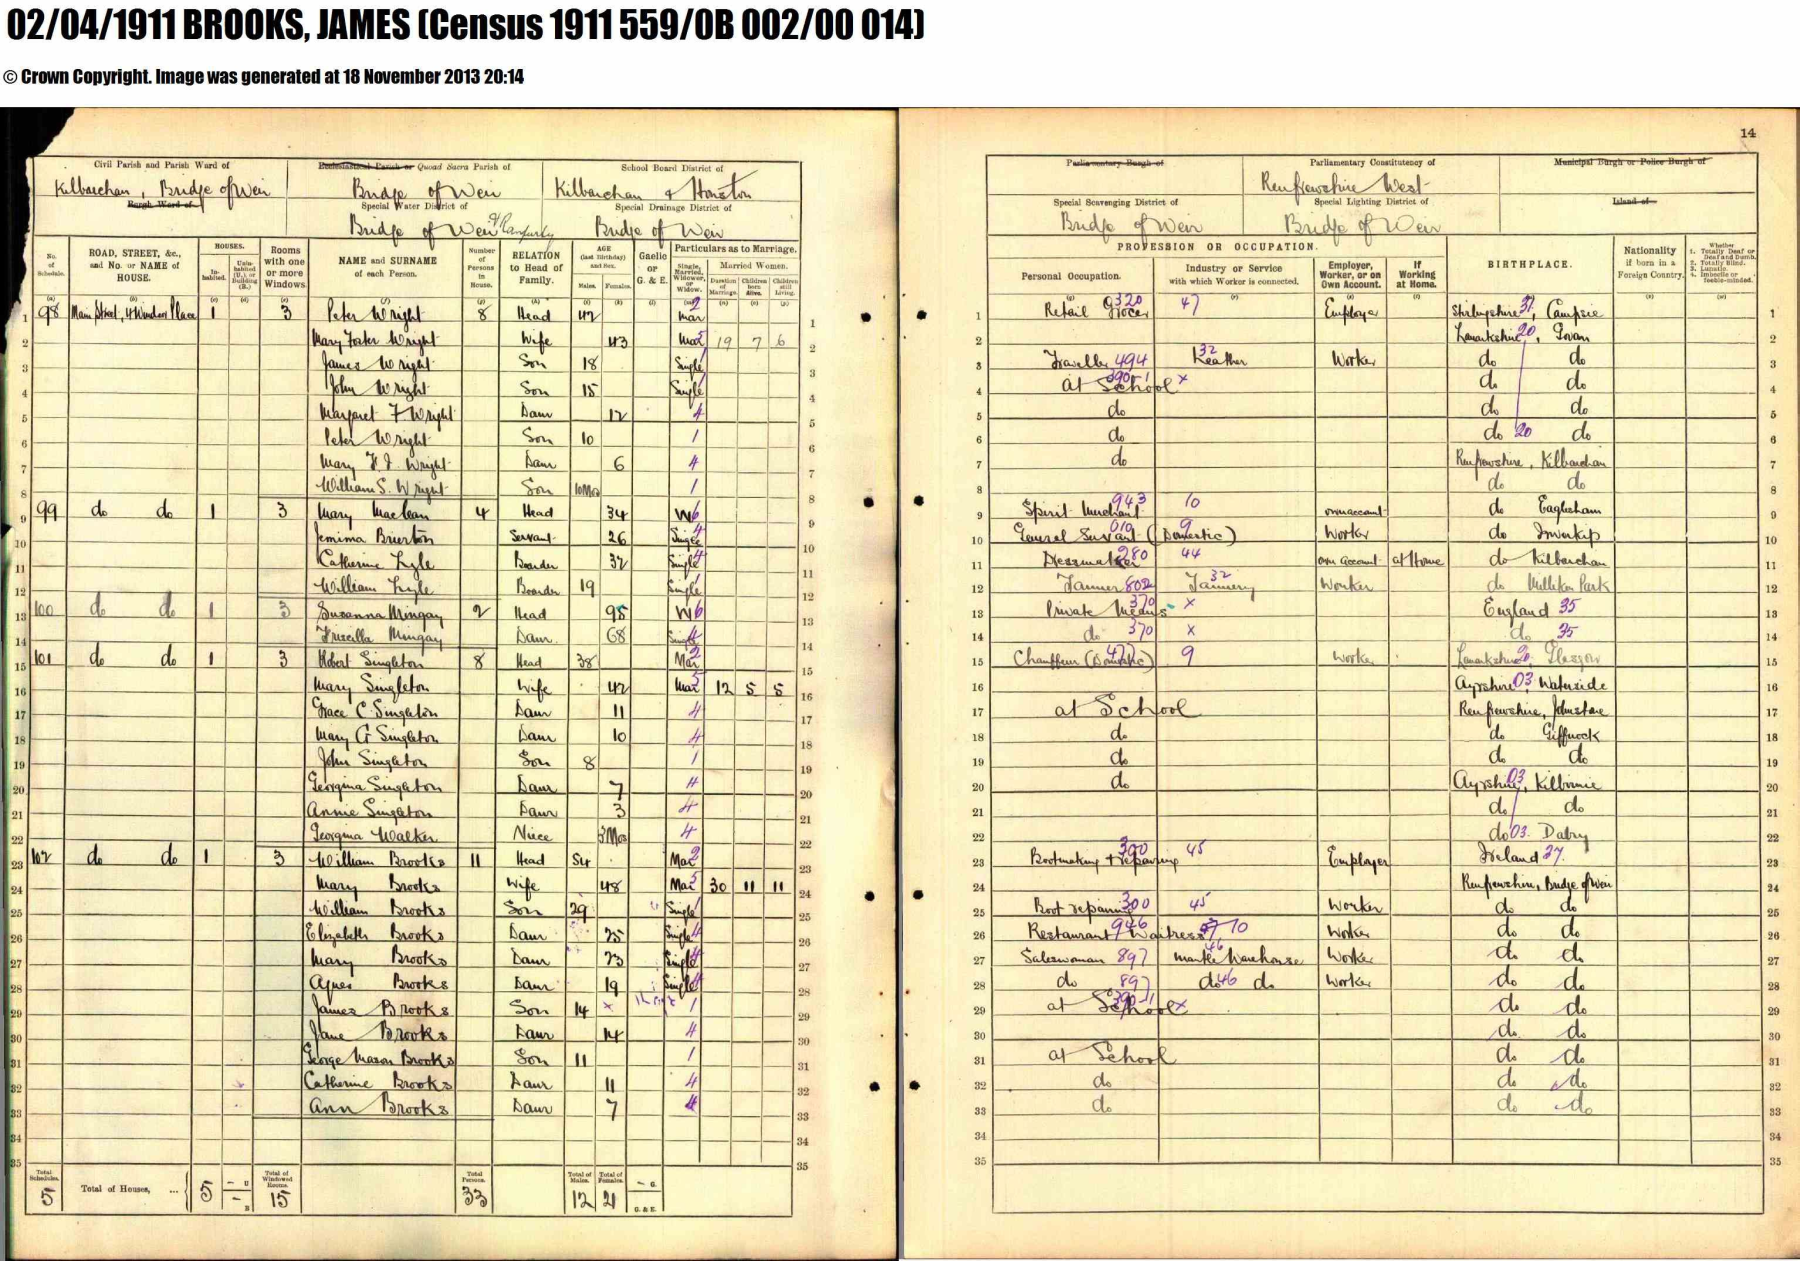 02/04/1911 BROOKS, JAMES (Census 1911 559/0B 002/00 014)
© Crown Copyright. Image was generated at 18 November 2013 20:14
14
Civil Parish and Parish Ward of
Kilbarchan, Bridge of Weir
Burgh Ward of
Ecclesiastical Parish or Quoad Sacra Parish of
Bridge of Weir
School Board District of
Kilbarchan & Houston
Special Water District of
Bridge of Weir & Ranfurly
Special Drainage District of
Bridge of Weir
Parliamentary Burgh of
Parliamentary Constituency of
Renfrewshire West
Municipal Burgh or Police Burgh of
Special Scavenging District of
Bridge of Weir
Special Lighting District of
Bridge of Weir
Island of
No. of Schedule.
ROAD, STREET, &c., and No. or NAME of HOUSE.
HOUSES.
Inhabited.
Uninhabited (U.) or Building (B.)
Rooms with one or more Windows.
NAME and SURNAME of each Person.
Number of Persons in House.
RELATION to Head of Family.
AGE (last Birthday) and Sex.
Males. Females.
Gaelic or G. & E.
Particulars as to Marriage.
Single, Married, Widower, or Widow.
Married Women.
Duration of Marriage. Children born Alive. Children still Living.
PROFESSION OR OCCUPATION.
Personal Occupation.
Industry or Service with which Worker is connected.
Employer, Worker, or on Own Account.
If Working at Home.
BIRTHPLACE.
Nationality if born in a Foreign Country.
Whether
1. Totally Deaf or Deaf and Dumb.
2. Totally Blind.
3. Lunatic.
4. Imbecile or feeble-minded.
1 98 Main Street, 4 Windsor Place 1 3 Peter Wright 8 Head 42 Mar 2 Retail Grocer 320 47 Employer Stirlingshire 31, Campsie
2 Mary Foster Wright Wife 43 Mar 5 19 7 6 Lanarkshire 20, Govan
3 James Wright Son 18 Single 1 Traveller 494 Leather 32 Worker do do
4 John Wright Son 15 Single 1 at School x do do
5 Margaret F Wright Daur 12 4 do do do
6 Peter Wright Son 10 1 do do 20 do
7 Mary Wright Daur 6 4 do Renfrewshire, Kilbarchan
8 William S. Wright Son 10Mos 1 do do
9 99 do do 1 3 Mary Maclean 4 Head 34 W 6 Spirit Merchant 943 10 own account do Eaglesham
10 Jemima Brierton Servant 26 Single 4 General Servant (Domestic) 010 9 Worker do Inverkip
11 Catherine Lyle Boarder 32 Single 4 Dressmaker 280 44 own account at Home do Kilbarchan
12 William Lyle Boarder 19 Single 1 Tanner 802 Tannery 32 Worker do Milliken Park
13 100 do do 1 3 Susanna Mingay 2 Head 95 W 6 Private Means 370 x England 35
14 Priscilla Mingay Daur 68 Single 4 do 370 x do 35
15 101 do do 1 3 Robert Singleton 8 Head 38 Mar 2 Chauffeur (Domestic) 9 Worker Lanarkshire 20, Glasgow
16 Mary Singleton Wife 42 Mar 5 12 5 5 Ayrshire 03, Waterside
17 Grace C Singleton Daur 11 4 at School Renfrewshire, Johnstone
18 Mary G Singleton Daur 10 4 do do Giffnock
19 John Singleton Son 8 1 do do do
20 Georgina Singleton Daur 7 4 do Ayrshire 03, Kilbirnie
21 Annie Singleton Daur 3 4 do do
22 Georgina Walker Niece 3Mos 4 do 03 Dalry
23 102 do do 1 3 William Brooks 11 Head 54 Mar 2 Bootmaking & repairing 300 45 Employer Ireland 27
24 Mary Brooks Wife 48 Mar 5 30 11 11 Renfrewshire, Bridge of Weir
25 William Brooks Son 29 Single 1 Boot repairing 300 45 Worker do do
26 Elizabeth Brooks Daur 25 Single 4 Restaurant Waitress 946 10 Worker do do
27 Mary Brooks Daur 23 Single 4 Saleswoman 897 mantle Warehouse 46 Worker do do
28 Agnes Brooks Daur 19 Single 4 do 897 do 46 do Worker do do
29 James Brooks Son 14 1 at School x do do
30 Jane Brooks Daur 14 4 do do
31 George Mason Brooks Son 11 1 at School do do
32 Catherine Brooks Daur 11 4 do do do
33 Ann Brooks Daur 7 4 do do do
34
35
Total Schedules. 5
Total of Houses, ... 5 – U – B
Total of Windowed Rooms. 15
Total Persons. 33
Total of Males. 12
Total of Females. 21
– G.
G. & E.